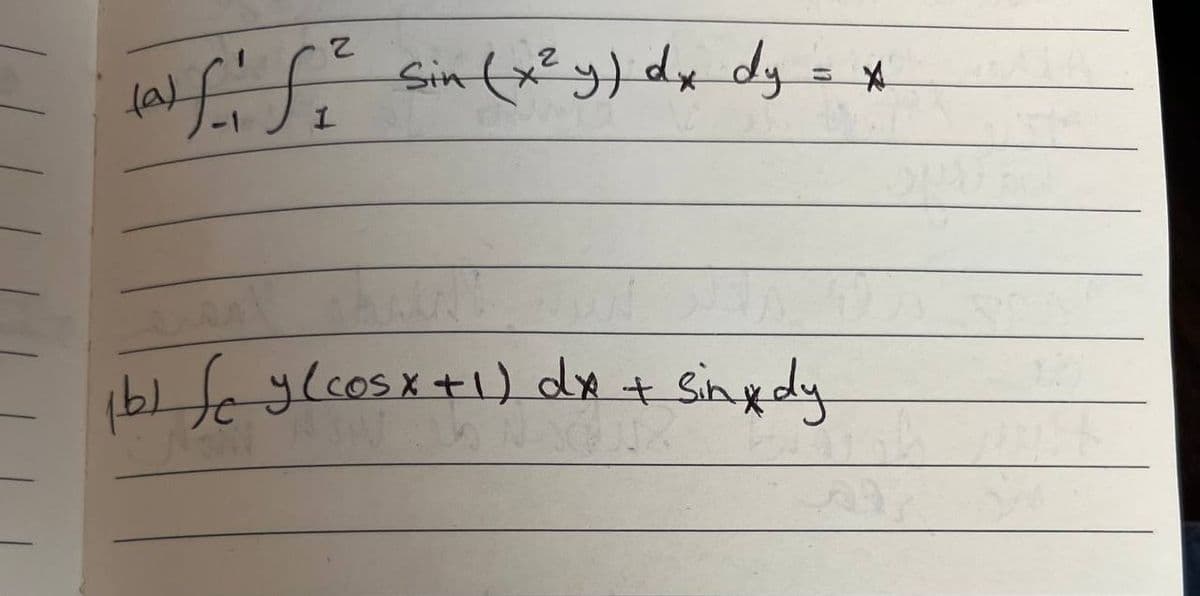 (a) ∫₋₁¹ ∫₁² sin (x² y) dx dy = x
(b) ∫c y(cos x + 1) dx + sin x dy